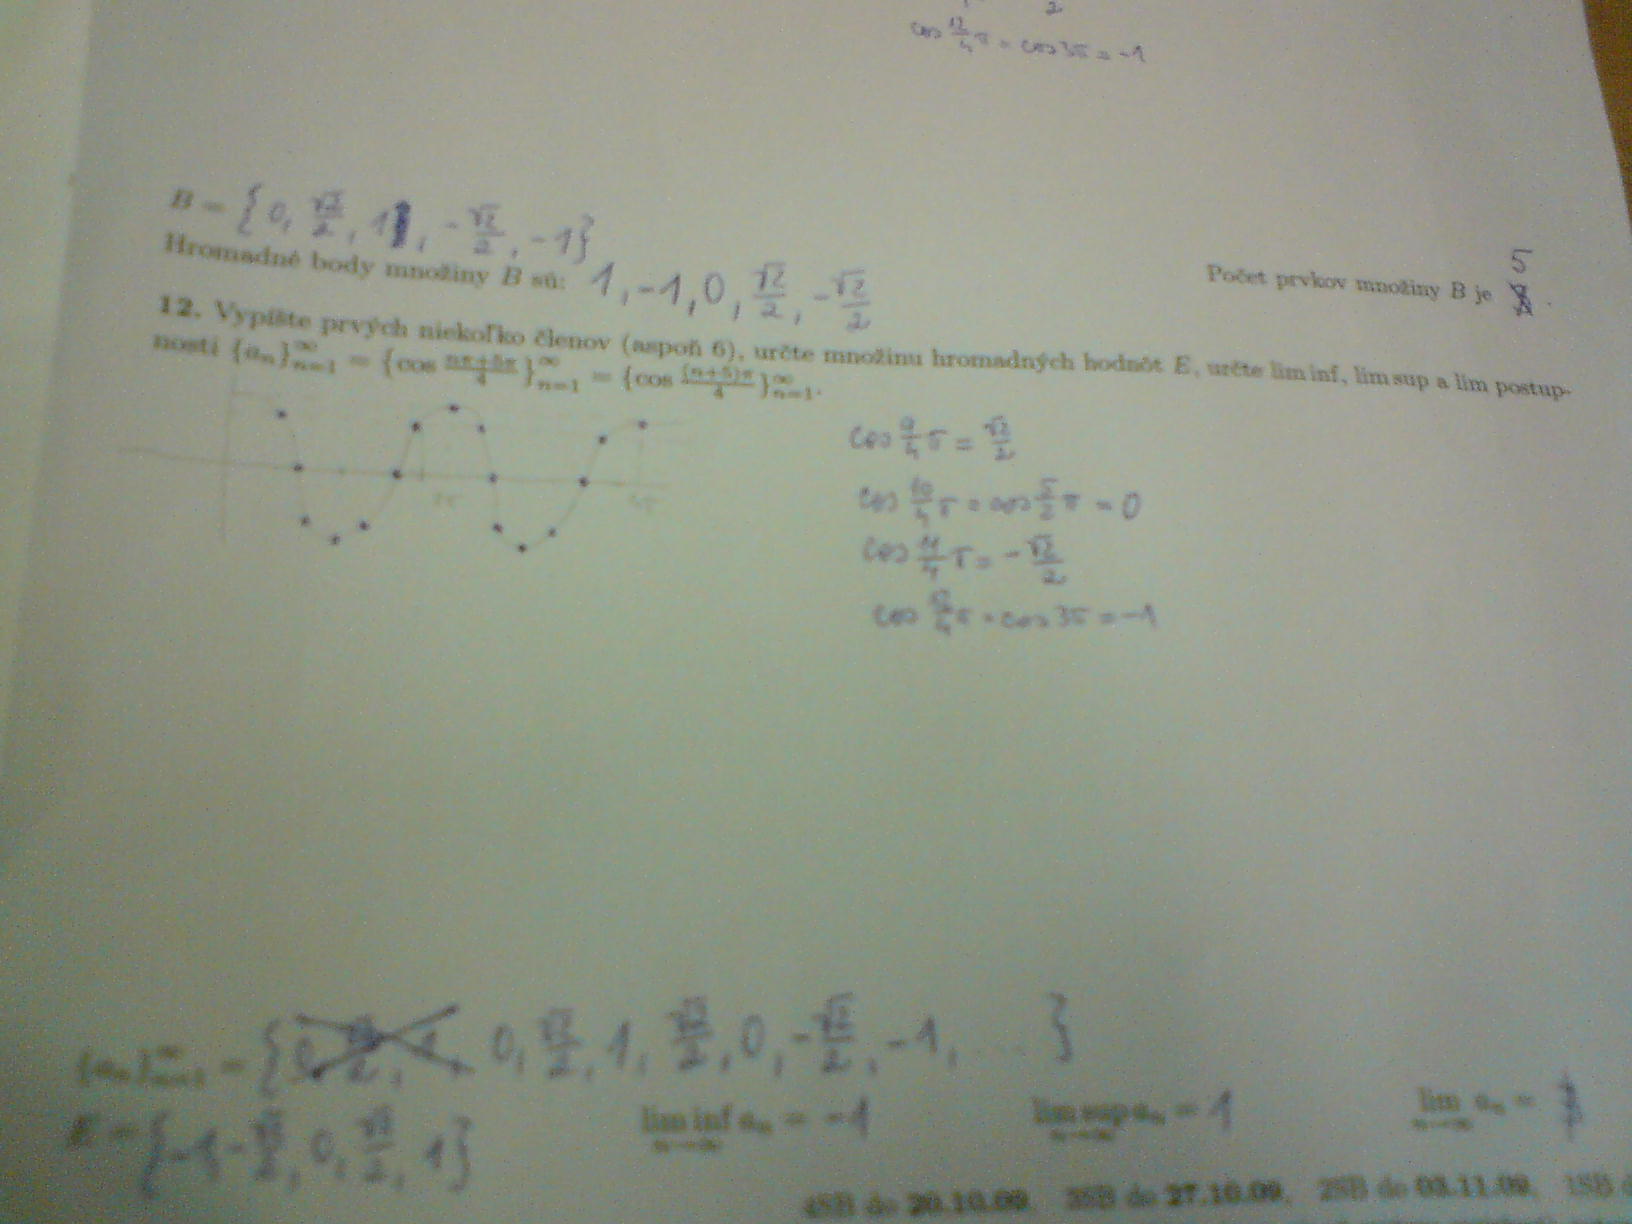 2
cos 12/4 π = cos 3π = -1
B = {0, √2/2, 1, -√2/2, -1}
Hromadné body množiny B sú: 1, -1, 0, √2/2, -√2/2
Počet prvkov množiny B je 5.
12. Vypíšte prvých niekoľko členov (aspoň 6), určte množinu hromadných hodnôt E, určte lim inf, lim sup a lim postup-
nosti {a_n}_{n=1}^∞ = {cos (nπ+5π)/4}_{n=1}^∞ = {cos ((n+5)π)/4}_{n=1}^∞.
2π 4π
cos 9/4 π = √2/2
cos 10/4 π = cos 5/2 π = 0
cos 11/4 π = -√2/2
cos 12/4 π = cos 3π = -1
{a_n}_{n=1}^∞ = { 0, √2/2, 1, √2/2, 0, -√2/2, -1, ... }
E = {-1, -√2/2, 0, √2/2, 1}
lim inf a_n = -1
n→∞
lim sup a_n = 1
n→∞
lim a_n = ∄
n→∞
4SB do 20.10.09, 3SB do 27.10.09, 2SB do 03.11.09, 1SB d